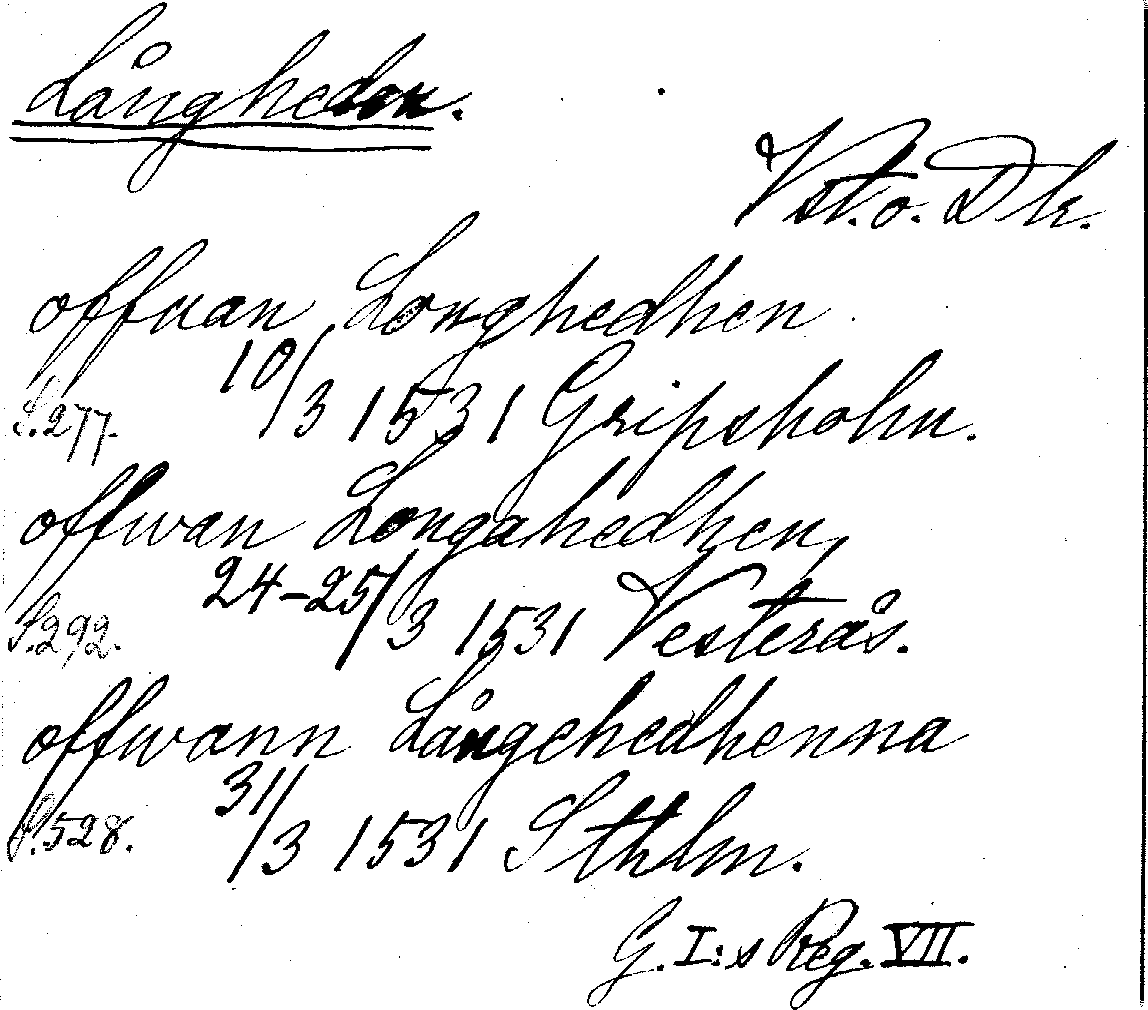 Långheden.
Vst. o. Dlr.
offuan Longhedhen
S. 277. 10/3 1531 Gripsholm.
offwan Longahedhen,
S. 292. 24-25/3 1531 Vesterås.
offwann Långehedhenna
S. 528. 31/3 1531 Sthlm.
G. I:s Reg. VII.